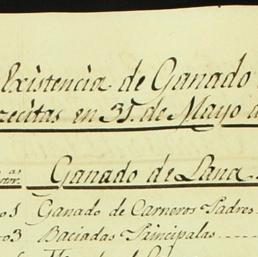 Existencia de Ganado
recitas en 31. de Mayo
Ganado de Lana
01 Ganado de Carneros Padres
03 Baciadas Principalas